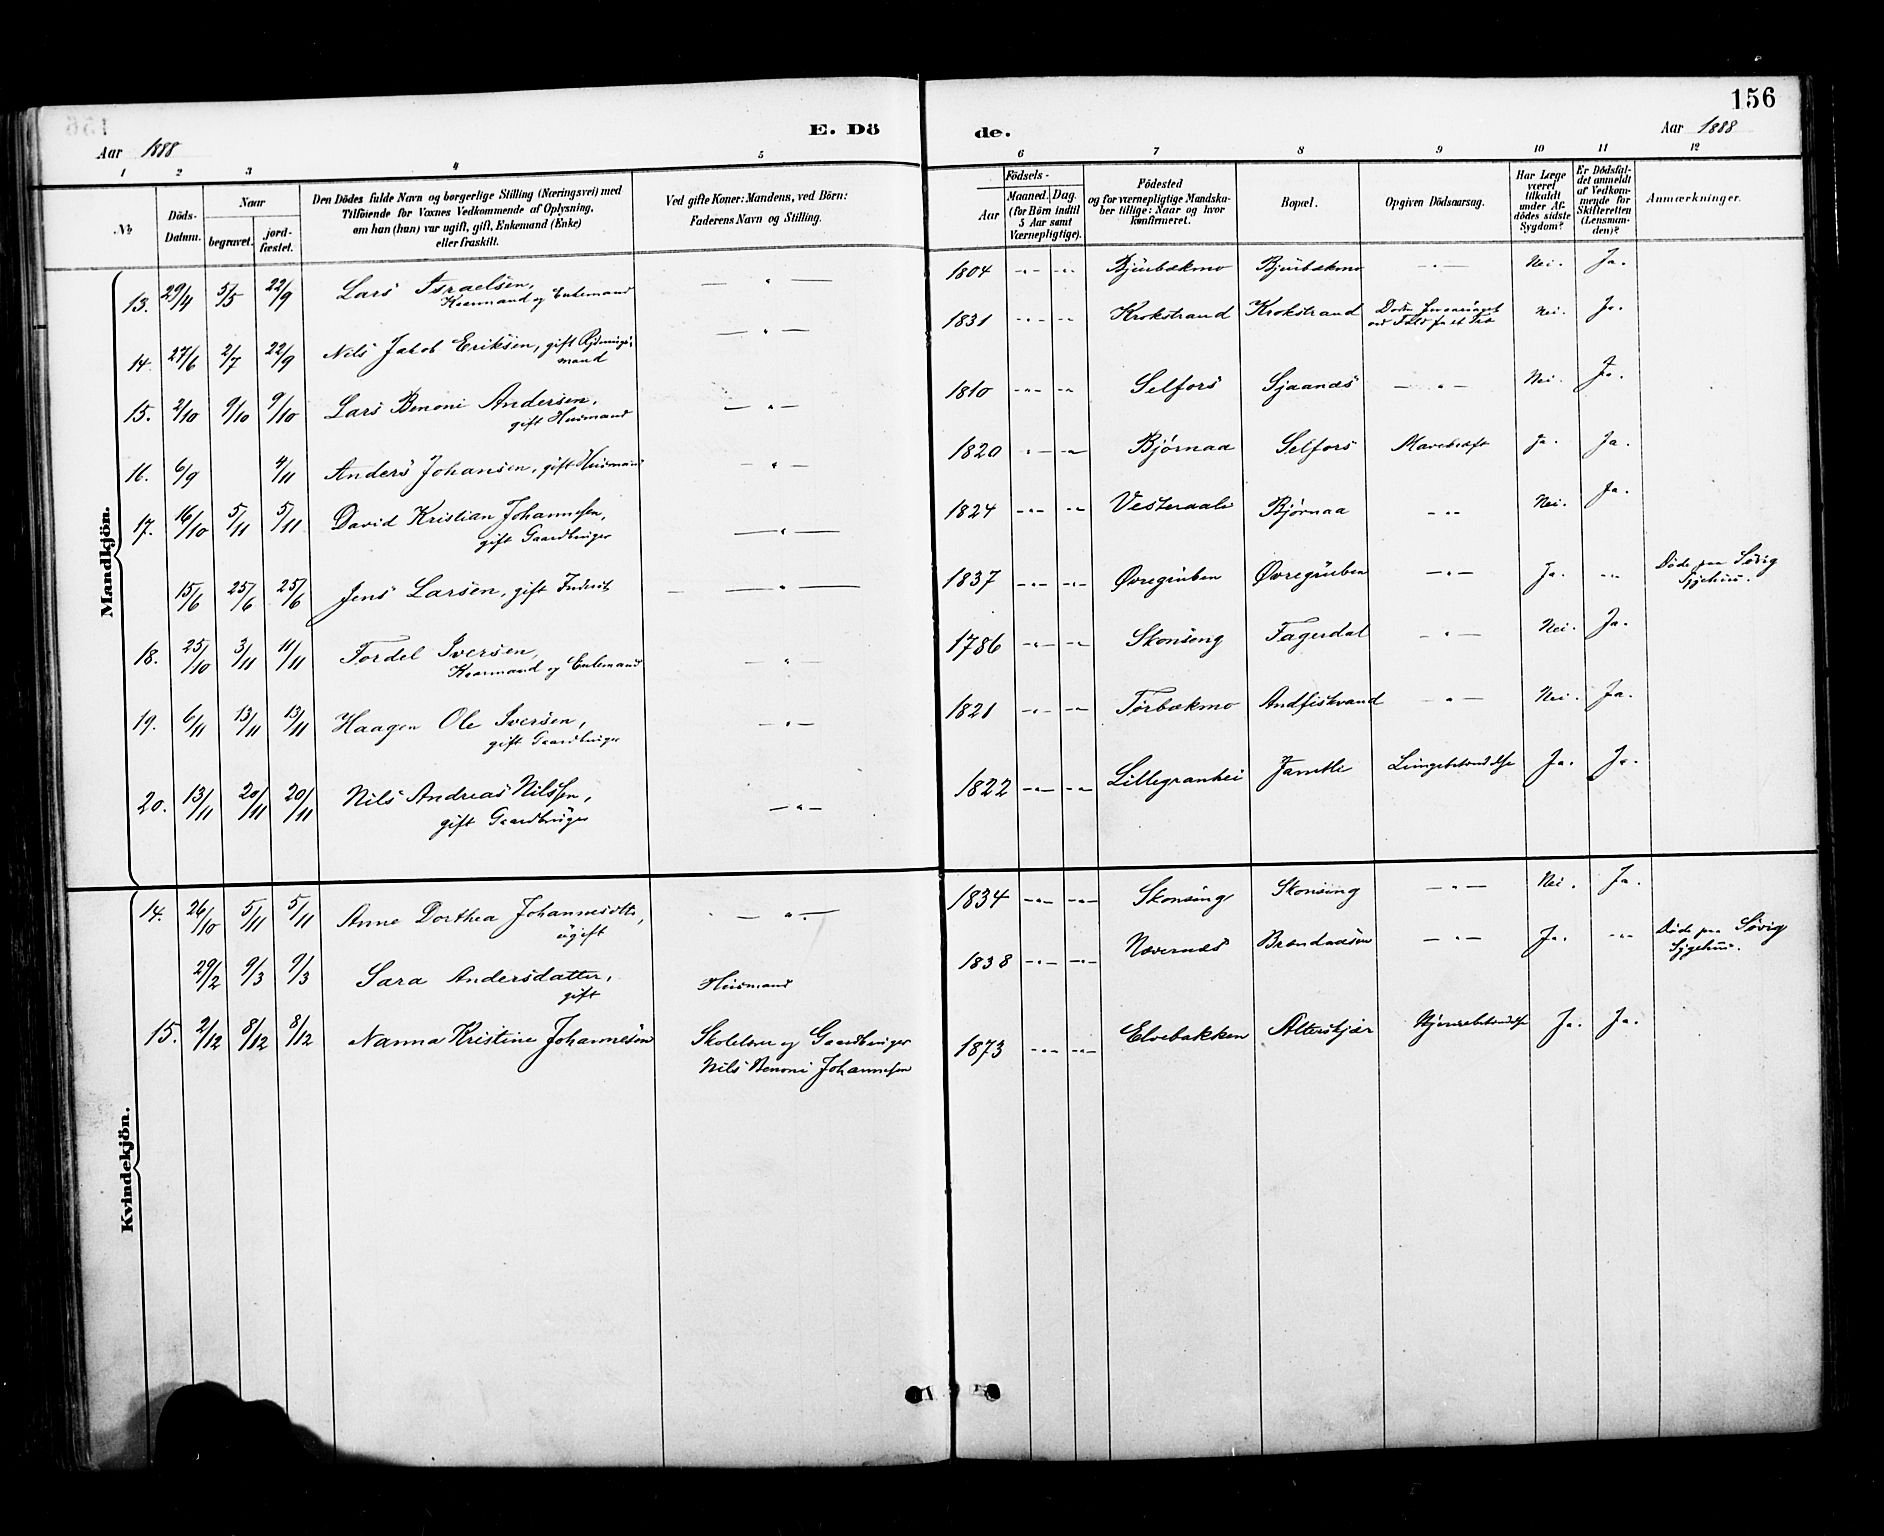 156
E. Dö de.
Aar 1888
Aar 1888
1 2 3 4 5 6 7 8 9 10 11 12
No
Döds-Datum.
Naar
begravet.
jord-fæstet.
Den Dödes fulde Navn og borgerlige Stilling (Næringsvei) med
Tilföiende for Voxnes Vedkommende af Oplysning,
om han (hun) var ugift, gift, Enkemand (Enke)
eller fraskilt.
Ved gifte Koner: Mandens, ved Börn:
Faderens Navn og Stilling.
Födsels-
Aar
Maaned. Dag.
(for Börn indtil
5 Aar samt
Værnepligtige).
Födested
og for værnepligtige Mandska-
ber tillige: Naar og hvor
konfirmeret.
Bopæl.
Opgiven Dödsaarsag.
Har Læge
været
tilkaldt
under Af-
dödes sidste
Sygdom?
Er Dödsfal-
det anmeldt
af Vedkom-
mende for
Skifteretten
(Lensman-
den)?
Anmærkninger.
Mandkjön.
13. 29/4 5/5 22/9 Lars Israelsen, — " — 1804 -"- -"- Bjurbækmo Bjurbækmo -"- Nei. Ja.
Kaarmand og Enkemand
14. 27/6 2/7 22/9 Nils Jakob Eriksen, gift Rydnings- — " — 1831 -"- -"- Krokstrand Krokstrand Nei. Ja.
mand
15. 2/10 9/10 9/10 Lars Benoni Andersen, — " — 1810 -"- -"- Selfors Sjaanæs — " — Nei. Ja.
gift Husmand
16. 6/9 4/11 Anders Johansen, gift Husmand — " — 1820 -"- -"- Bjørnaa Selfors Mavekræft Ja. Ja.
17. 16/10 5/11 5/11 David Kristian Johannesen, — " — 1824 -"- -"- Vesteraali Bjørnaa -"- Nei. Ja.
gift Gaardbruger
15/6 25/6 25/6 Jens Larsen, gift Inderst — " — 1837 -"- -"- Øvregruben Øvregruben -"- Ja. -"- Døde paa Søvig
Sygehus.
18. 25/10 3/11 11/11 Tordel Iversen, — " — 1786 -"- -"- Skonseng Fagerdal -"- Nei. Ja.
Kaarmand og Enkemand
19. 6/11 13/11 13/11 Haagen Ole Iversen, — " — 1821 -"- -"- Tørbækmo Andfiskvand -"- Nei. Ja.
gift Gaardbruger
20. 13/11 20/11 20/11 Nils Andreas Nilssen, — " — 1822 -"- -"- Lillegranhei Jamtli Lungebetændelse Ja. Ja.
gift Gaardbruger
Kvindekjön.
14. 26/10 5/11 5/11 Anne Dorthea Johannesdtr, — " — 1834 -"- -"- Skonseng Skonseng — " — Nei. Ja.
ugift
29/2 9/3 9/3 Sara Andersdatter, Husmand 1838 -"- -"- Nævernæs Brændaasen — " — Ja. -"- Døde paa Søvig
gift Sygehus.
15. 2/12 8/12 8/12 Nanna Kristine Johannesen Skolelærer og Gaardbruger 1873 -"- -"- Elvebakken Alterskjær Hjernebetændelse Ja. Ja.
Nils Benoni Johannesen